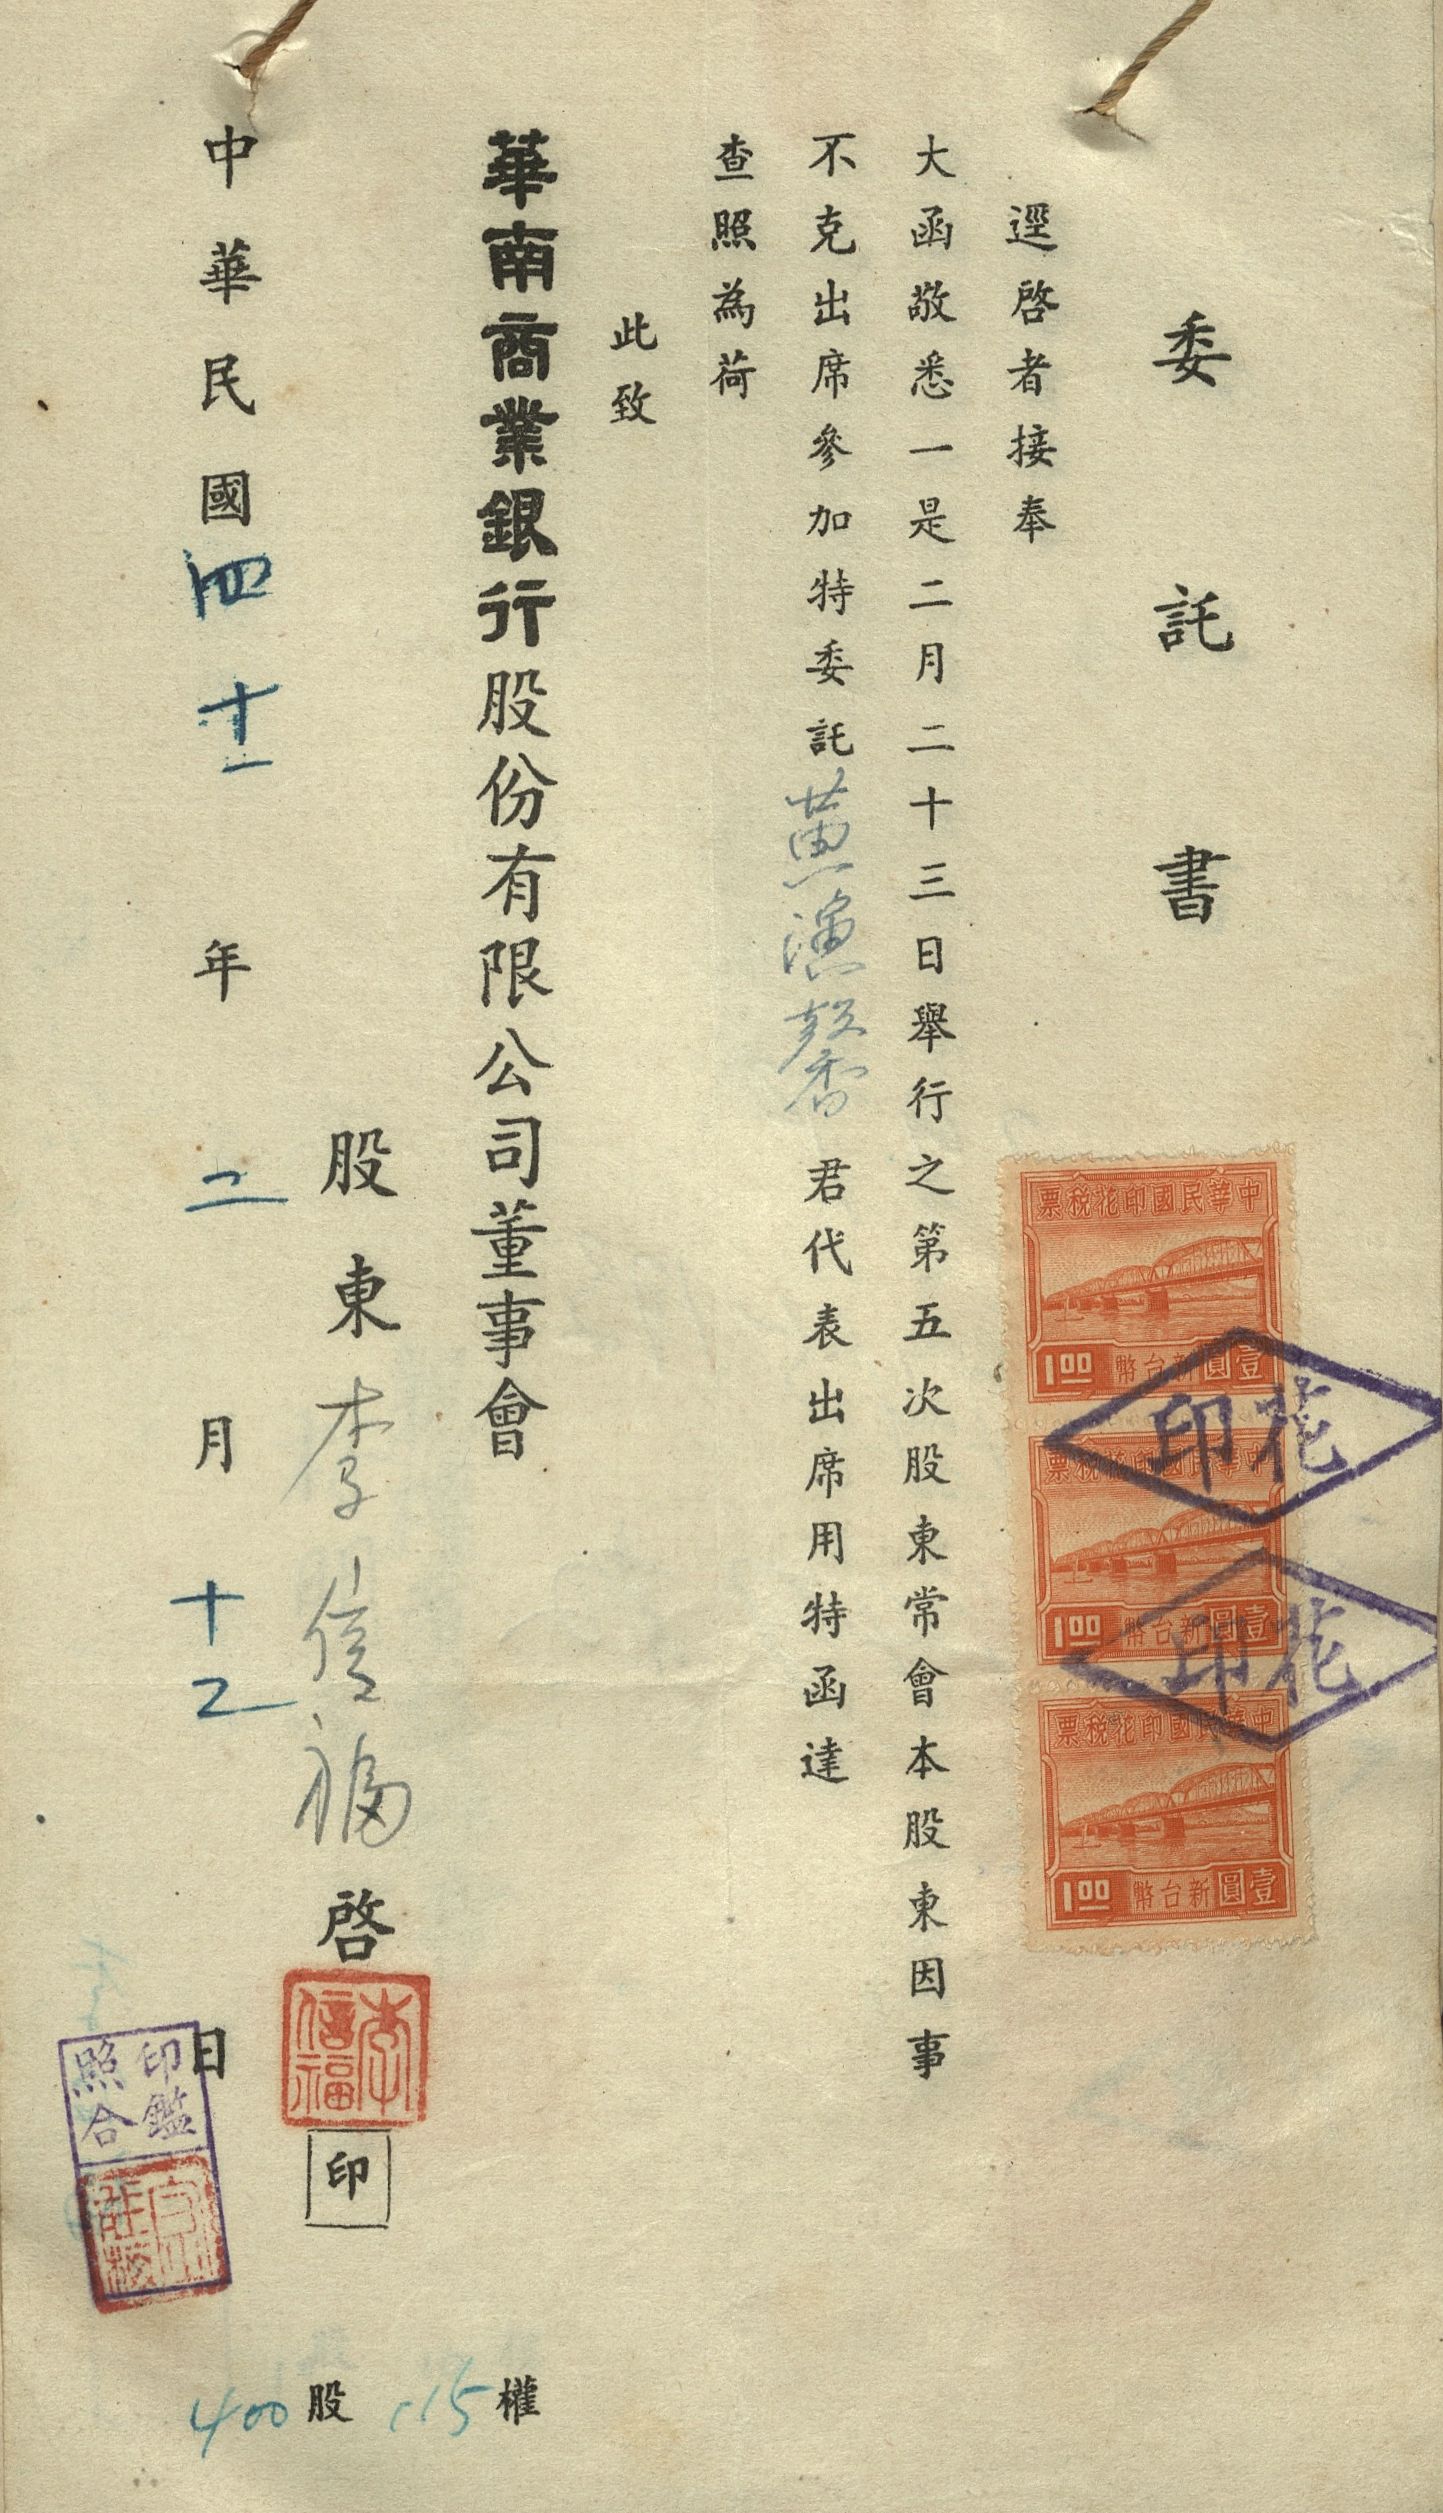 委託書
中華民國印花稅票
1.00 新台幣壹圓
花印
中華民國印花稅票
1.00 新台幣壹圓
花印
中華民國印花稅票
1.00 新台幣壹圓
逕啓者接奉
大函敬悉一是二月二十三日舉行之第五次股東常會本股東因事
不克出席參加特委託黃演馨君代表出席用特函達
查照為荷
此致
華南商業銀行股份有限公司董事會
股東李信福啓
李信福
印
中華民國四十一年二月十二日
印鑑照合
115權
400股